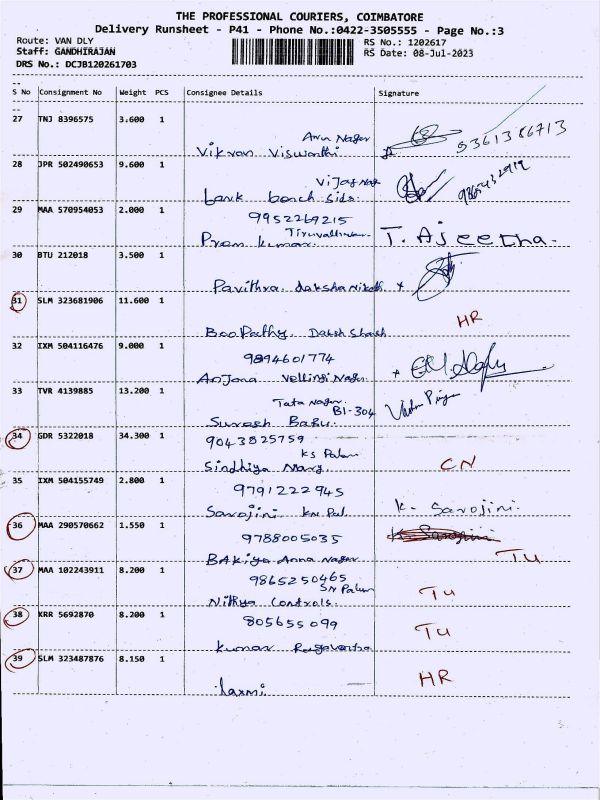 THE PROFESSIONAL COURIERS, COIMBATORE
Delivery Runsheet - P41 - Phone No.:0422-3505555 - Page No.:3
Route: VAN DLY RS No.: 1202617
Staff: GANDHIRAJAN RS Date: 08-Jul-2023
DRS No.: DCJB120261703
S No Consignment No Weight PCS Consignee Details Signature
27 TNJ 8396575 3.600 1
Arun Nagar 9361386713
Vikran Viswanthi
28 JPR 502490653 9.600 1
Vijay Nag
bank bench side.
29 MAA 570954053 2.000 1
9952269215
Tiruvallivar
Prem kumar. T. Ajeetha.
30 BTU 212018 3.500 1
Pavithra.
31 SLM 323681906 11.600 1
HR
Boopathy Daksh
32 IXM 504116476 9.000 1
9894601774
Anjana Vellingi Nagar
33 TVR 4139885 13.200 1
Tata Nagar.
B1-304
Suresh Babu.
34 GDR 5322018 34.300 1
9043825759
ks Palam
Sindhiya Mary. CN
35 IXM 504155749 2.800 1
9791222945
Sarojini kn Pal. K. Sarojini.
36 MAA 290570662 1.550 1
9788005035 K Sarojini
BAkiya Anna Nagar TU
37 MAA 102243911 8.200 1
9865250465
SN Palam
Nithya Controls. TU
38 KRR 5692870 8.200 1
805655099 TU
kumar Ragaventra
39 SLM 323487876 8.150 1
HR
Laxmi